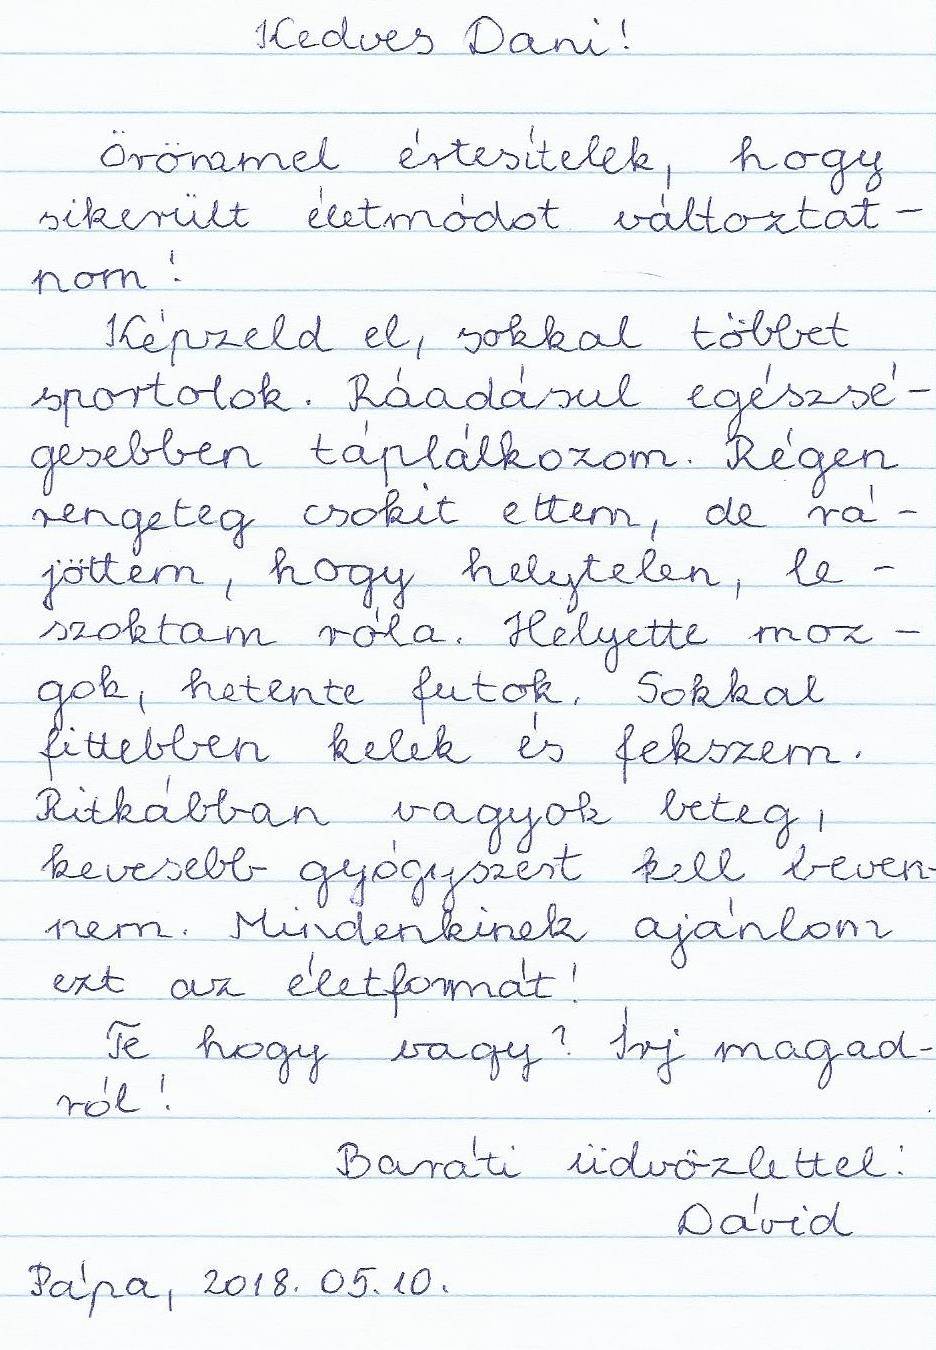 Kedves Dani!
Örömmel értesítelek, hogy
sikerült életmódot változtat-
nom!
Képzeld el, sokkal többet
sportolok. Ráadásul egészsé-
gesebben táplálkozom. Régen
rengeteg csokit ettem, de rá-
jöttem, hogy helytelen, le-
szoktam róla. Helyette moz-
gok, hetente futok. Sokkal
fittebben kelek és fekszem.
Ritkábban vagyok beteg,
kevesebb gyógyszert kell beven-
nem. Mindenkinek ajánlom
ezt az életformát!
Te hogy vagy? Írj magad-
ról!
Baráti üdvözlettel:
Dávid
Pápa, 2018. 05. 10.